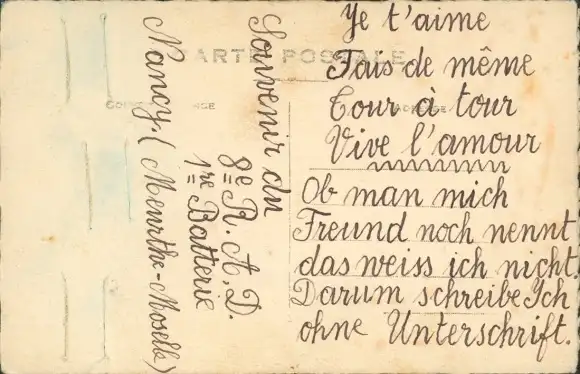 CARTE POSTALE
CORRESPONDANCE
ADRESSE
Je t'aime
Fais de même
Tour à tour
Vive l'amour
Ob man mich
Freund noch nennt
das weiss ich nicht.
Darum schreibe Ich
ohne Unterschrift.
Souvenir du
8e R. A. D.
1re Batterie
Nancy. (Meurthe-Moselle)